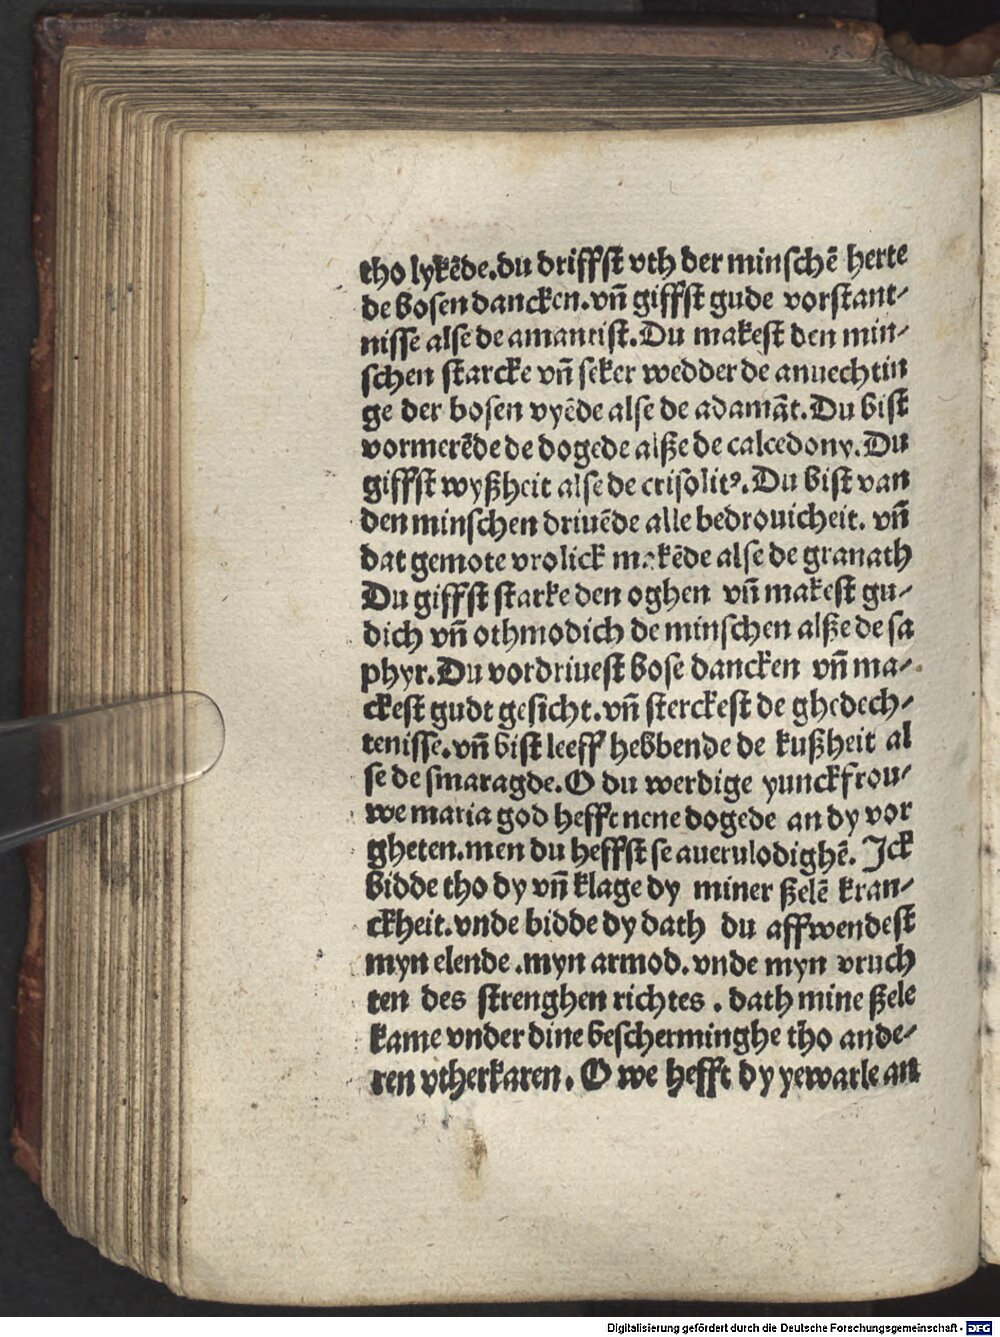 tho lykēde.du driffst vth der minschē herte
de bosen dancken.vn̄ giffst gude vorstant-
nisse alse de amantist.Du makest den min-
schen starcke vn̄ seker wedder de anuechtin
ge der bosen vyēde alse de adamāt.Du bist
vormerēde de dogede alße de calcedony.Du
giffst wyßheit alse de crisolitꝰ.Du bist van
den minschen driuēde alle bedrouicheit. vn̄
dat gemote vrolick makēde alse de granath
Du giffst starke den oghen vn̄ makest gu-
dich vn̄ othmodich de minschen alße de sa
phyr.Du vordriuest bose dancken vn̄ ma-
ckest gudt gesicht.vn̄ sterckest de ghedech-
tenisse.vn̄ bist leeff hebbende de kußheit al
se de smaragde.O du werdige yunckfrou-
we maria god hefft nene dogede an dy vor
gheten.men du heffst se auerulodighē. Ick
bidde tho dy vn̄ klage dy miner ßelē kran-
ckheit.vnde bidde dy dath du affwendest
myn elende.myn armod.vnde myn vruch
ten des strenghen richtes. dath mine ßele
kame vnder dine bescherminghe tho ande-
ren vtherkaren. O we hefft dy yewarle an
Digitalisierung gefördert durch die Deutsche Forschungsgemeinschaft - DFG